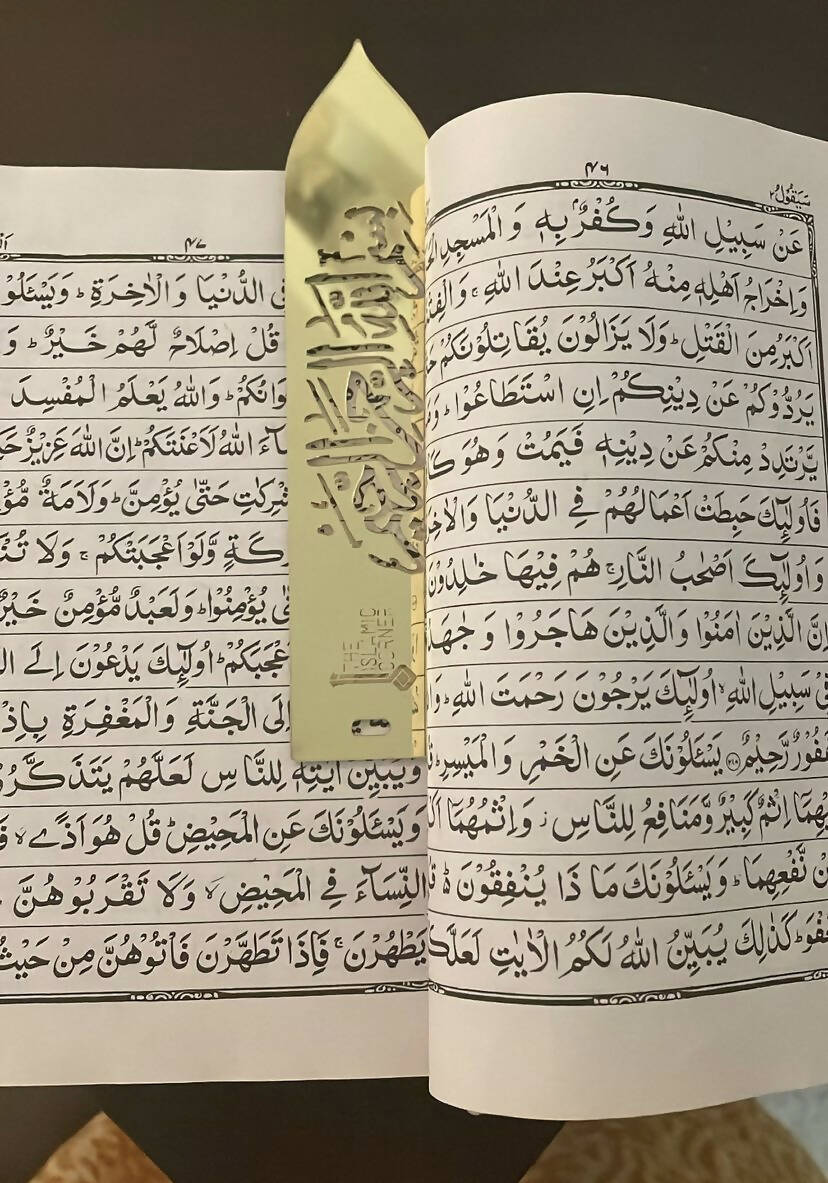 ۴۶
سَيَقُوْلُ ٢
عَنْ سَبِيْلِ اللّٰهِ وَكُفْرٌۢ بِهٖ وَ الْمَسْجِدِ
وَ اِخْرَاجُ اَهْلِهٖ مِنْهُ اَكْبَرُ عِنْدَ اللّٰهِ ۚ
اَكْبَرُ مِنَ الْقَتْلِ ؕ وَلَا يَزَالُوْنَ يُقَاتِلُوْنَكُمْ
يَرُدُّوْكُمْ عَنْ دِيْنِكُمْ اِنِ اسْتَطَاعُوْا ؕ
يَّرْتَدِدْ مِنْكُمْ عَنْ دِيْنِهٖ فَيَمُتْ وَهُوَ
فَاُولٰٓئِكَ حَبِطَتْ اَعْمَالُهُمْ فِي الدُّنْيَا
وَ اُولٰٓئِكَ اَصْحٰبُ النَّارِ ۚ هُمْ فِيْهَا خٰلِدُوْنَ
اِنَّ الَّذِيْنَ اٰمَنُوْا وَالَّذِيْنَ هَاجَرُوْا وَ
سَبِيْلِ اللّٰهِ ۙ اُولٰٓئِكَ يَرْجُوْنَ رَحْمَتَ اللّٰهِ ؕ
رَّحِيْمٌ ﴿۲۱۸﴾ يَسْـَٔلُوْنَكَ عَنِ الْخَمْرِ وَ الْمَيْسِرِ ؕ
اِثْمٌ كَبِيْرٌ وَّمَنَافِعُ لِلنَّاسِ ؗ وَ اِثْمُهُمَاۤ
نَّفْعِهِمَا ؕ وَ يَسْـَٔلُوْنَكَ مَا ذَا يُنْفِقُوْنَ ؕ
كَذٰلِكَ يُبَيِّنُ اللّٰهُ لَكُمُ الْاٰيٰتِ
بسم الله الرحمن الرحيم
THE
ISLAMIC
CORNER
۴۷
الدُّنْيَا وَ الْاٰخِرَةِ ؕ
قُلْ اِصْلَاحٌ لَّهُمْ خَيْرٌ ؕ وَ
وَاللّٰهُ يَعْلَمُ الْمُفْسِدَ
اللّٰهُ لَاَعْنَتَكُمْ ؕ اِنَّ اللّٰهَ عَزِيْزٌ
حَتّٰى يُؤْمِنَّ ؕ وَلَاَمَةٌ
وَّلَوْ اَعْجَبَتْكُمْ ۚ وَلَا
يُؤْمِنُوْا ؕ وَلَعَبْدٌ مُّؤْمِنٌ خَيْرٌ
اَعْجَبَكُمْ ؕ اُولٰٓئِكَ يَدْعُوْنَ اِلَى
اِلَى الْجَنَّةِ وَ الْمَغْفِرَةِ
وَيُبَيِّنُ اٰيٰتِهٖ لِلنَّاسِ لَعَلَّهُمْ
وَ يَسْـَٔلُوْنَكَ عَنِ الْمَحِيْضِ ؕ قُلْ هُوَ اَذًى ۙ
النِّسَآءَ فِي الْمَحِيْضِ ۙ وَلَا تَقْرَبُوْهُنَّ
يَطْهُرْنَ ۚ فَاِذَا تَطَهَّرْنَ فَاْتُوْهُنَّ مِنْ حَيْثُ